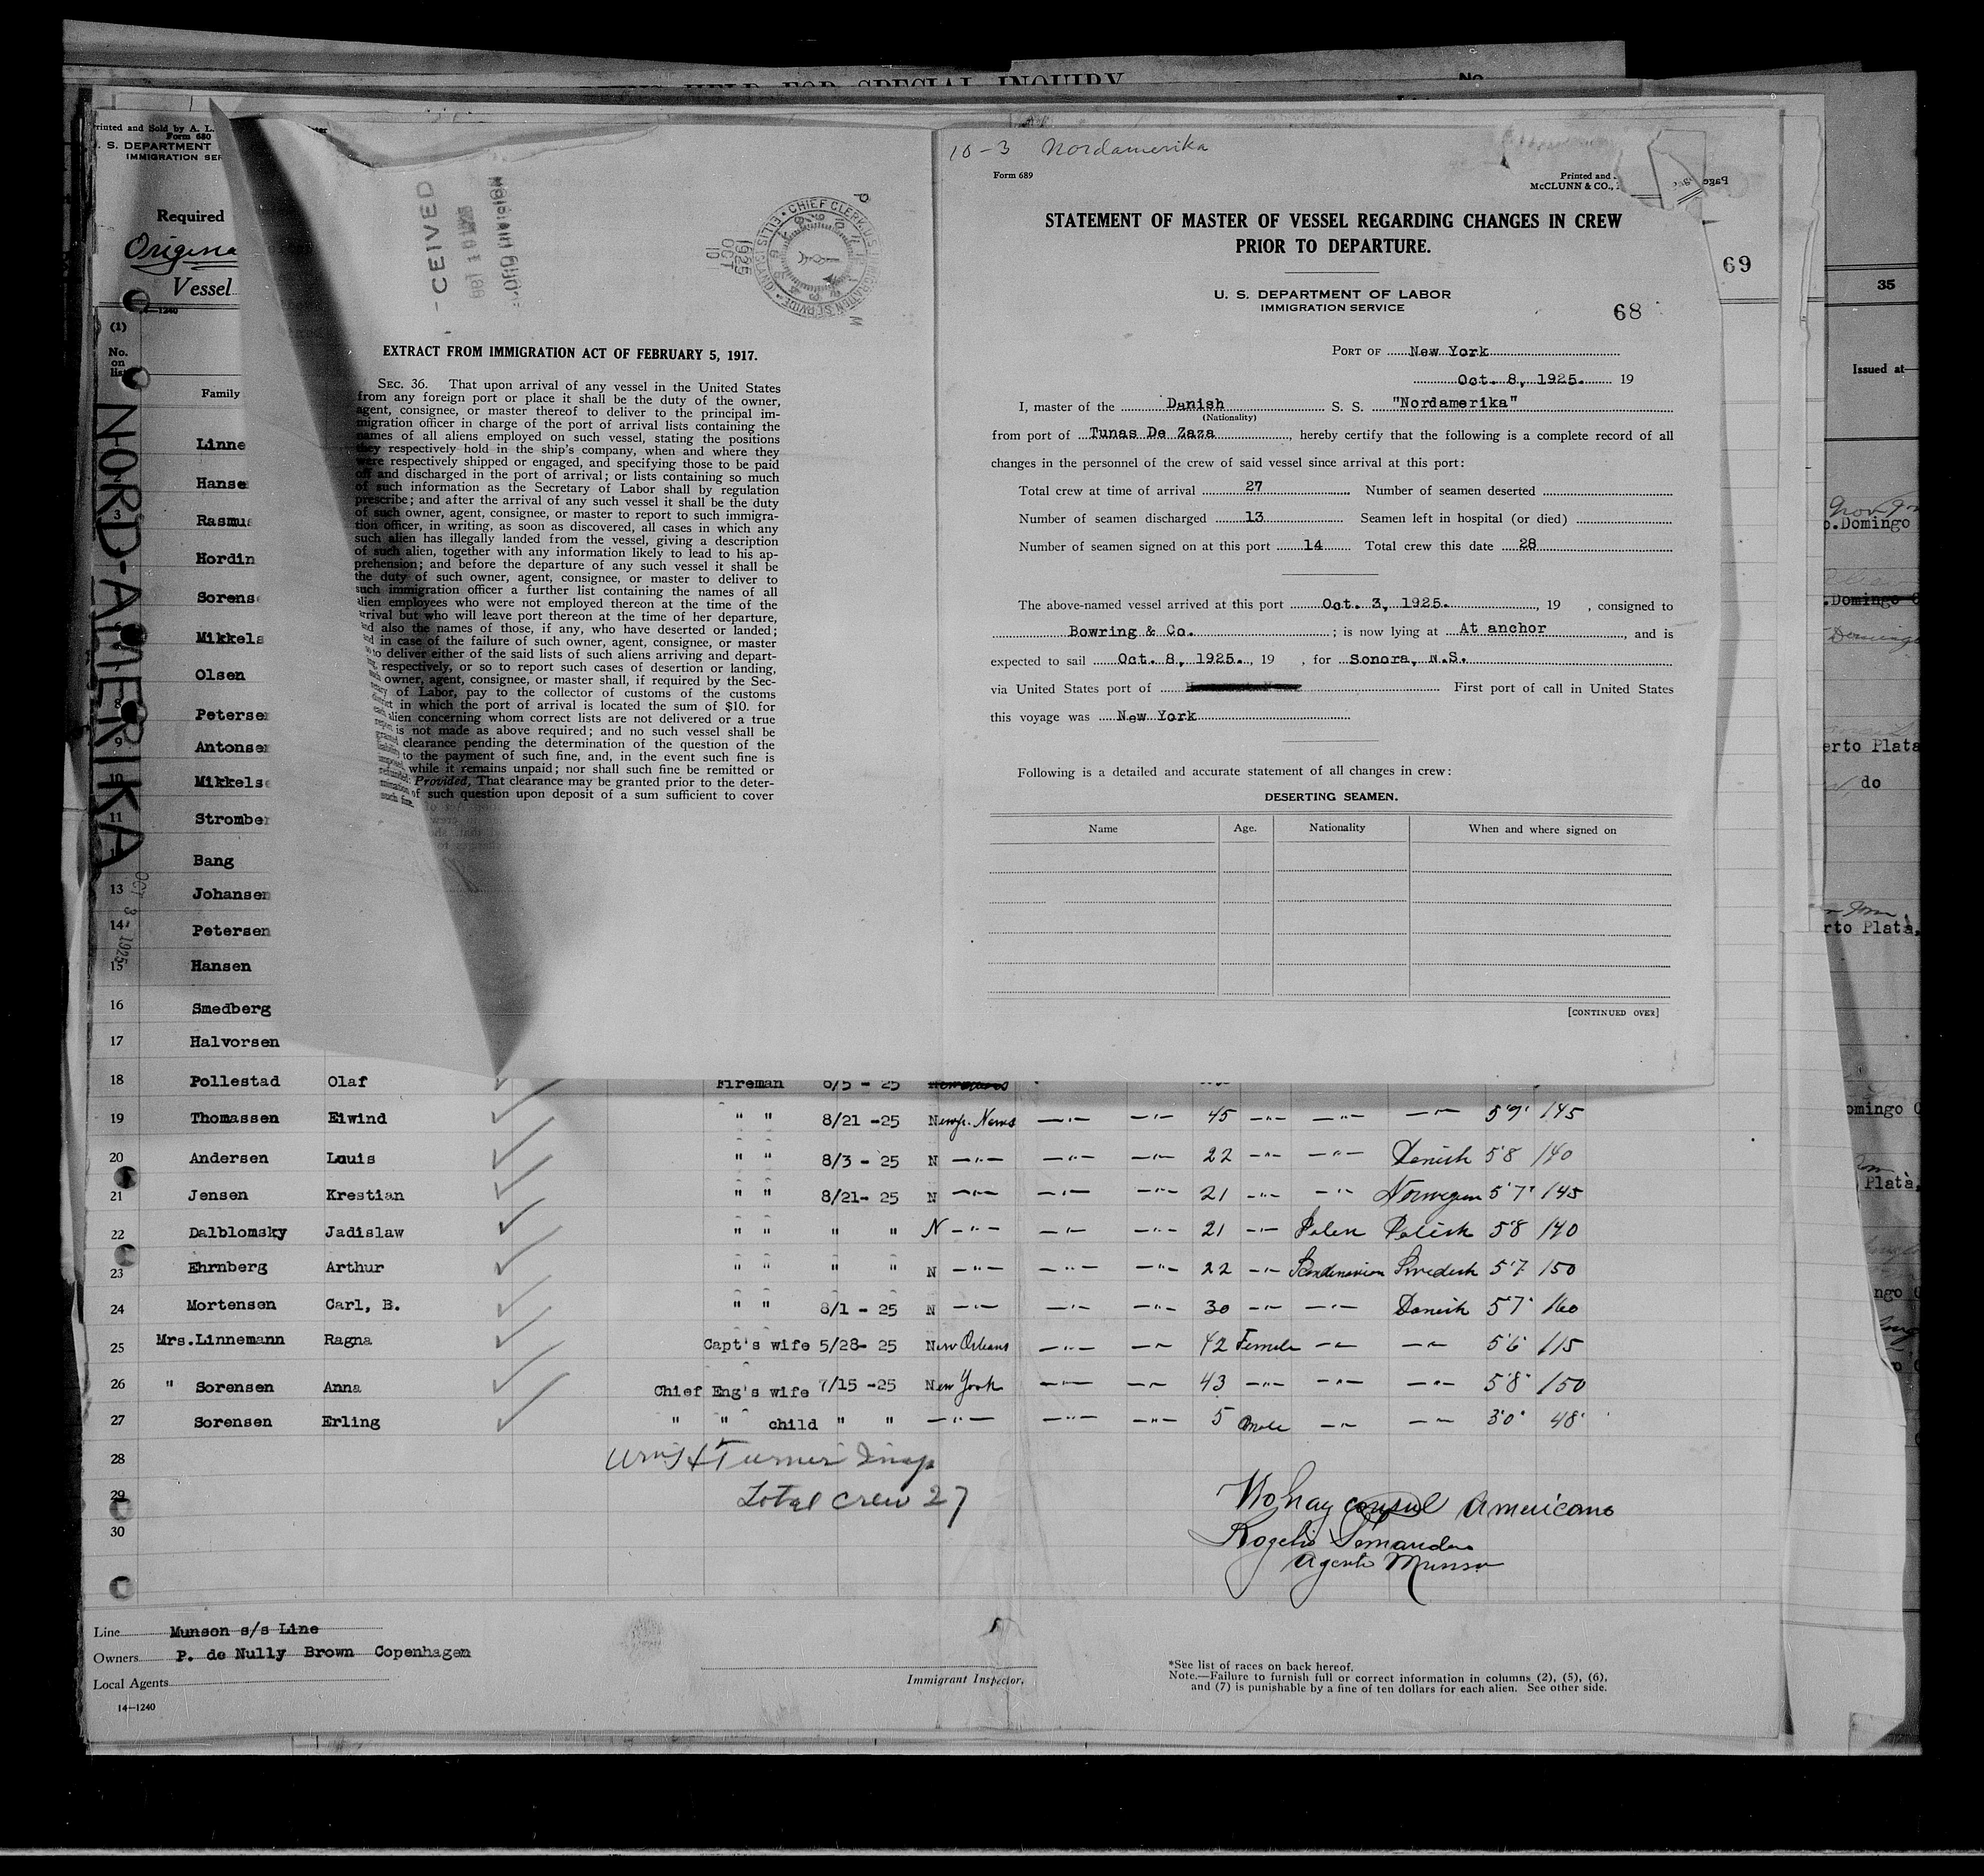 HELD FOR SPECIAL INQUIRY
No.
Printed and Sold by A. L.
Form 680
U. S. DEPARTMENT
IMMIGRATION SER
Required
Origina
Vessel
14—1240
(1)
No.
on
list
Family
NORD-AMERIKA
OCT 3 1925
Linne
Hanse
3 Rasmus
Hordin
Sorens
Mikkels
Olsen
8 Petersen
9 Antonsen
10 Mikkelse
11 Stromber
Bang
13 Johansen
14 Petersen
15 Hansen
16 Smedberg
17 Halvorsen
CEIVED
1925
OCT
10
CHIEF CLERK U.S. IMMIGRATION SERVICE ELLIS ISLAND
EXTRACT FROM IMMIGRATION ACT OF FEBRUARY 5, 1917.
SEC. 36. That upon arrival of any vessel in the United States
from any foreign port or place it shall be the duty of the owner,
agent, consignee, or master thereof to deliver to the principal im-
migration officer in charge of the port of arrival lists containing the
names of all aliens employed on such vessel, stating the positions
they respectively hold in the ship's company, when and where they
were respectively shipped or engaged, and specifying those to be paid
off and discharged in the port of arrival; or lists containing so much
of such information as the Secretary of Labor shall by regulation
prescribe; and after the arrival of any such vessel it shall be the duty
of such owner, agent, consignee, or master to report to such immigra-
tion officer, in writing, as soon as discovered, all cases in which any
such alien has illegally landed from the vessel, giving a description
of such alien, together with any information likely to lead to his ap-
prehension; and before the departure of any such vessel it shall be
the duty of such owner, agent, consignee, or master to deliver to
such immigration officer a further list containing the names of all
alien employees who were not employed thereon at the time of the
arrival but who will leave port thereon at the time of her departure,
and also the names of those, if any, who have deserted or landed;
and in case of the failure of such owner, agent, consignee, or master
so to deliver either of the said lists of such aliens arriving and depart-
ing, respectively, or so to report such cases of desertion or landing,
such owner, agent, consignee, or master shall, if required by the Sec-
retary of Labor, pay to the collector of customs of the customs
district in which the port of arrival is located the sum of $10. for
each alien concerning whom correct lists are not delivered or a true
is not made as above required; and no such vessel shall be
clearance pending the determination of the question of the
to the payment of such fine, and, in the event such fine is
while it remains unpaid; nor shall such fine be remitted or
refunded: Provided, That clearance may be granted prior to the deter-
of such question upon deposit of a sum sufficient to cover
such fine.
10-3 Nordamerika
Form 689
Printed and
McCLUNN & CO.,
STATEMENT OF MASTER OF VESSEL REGARDING CHANGES IN CREW
PRIOR TO DEPARTURE.
69
U. S. DEPARTMENT OF LABOR
IMMIGRATION SERVICE
68
PORT OF New York
Oct. 8, 1925. 19
I, master of the Danish S. S. "Nordamerika"
(Nationality)
from port of Tunas De Zaza, hereby certify that the following is a complete record of all
changes in the personnel of the crew of said vessel since arrival at this port:
Total crew at time of arrival 27 Number of seamen deserted
Number of seamen discharged 13 Seamen left in hospital (or died)
Number of seamen signed on at this port 14 Total crew this date 28
The above-named vessel arrived at this port Oct. 3, 1925., 19 , consigned to
Bowring & Co. ; is now lying at At anchor, and is
expected to sail Oct. 8, 1925., 19 , for Sonora, N.S.
via United States port of First port of call in United States
this voyage was New York
Following is a detailed and accurate statement of all changes in crew:
DESERTING SEAMEN.
Name Age. Nationality When and where signed on
[CONTINUED OVER]
35
Issued at
o.Domingo
.Domingo
erto Plata
do
rto Plata,
omingo
Plata,
ngo
18 Pollestad Olaf Fireman 6/5 - 25
19 Thomassen Eiwind " " 8/21 -25 Newp. News —"— —"— 45 —"— —"— —"— 5'9" 145
20 Andersen Louis " " 8/3 - 25 N —"— —"— —"— 22 —"— —"— Danish 5'8 140
21 Jensen Krestian " " 8/21- 25 N —"— —"— —"— 21 —"— —"— Norwegian 5'7" 145
22 Dalblomsky Jadislaw " " " " N —"— —"— —"— 21 —"— Polen Polish 5'8 140
23 Ehrnberg Arthur " " " " N —"— —"— —"— 22 —"— Scandinavian Swedish 5'7 150
24 Mortensen Carl, B. " " 8/1 - 25 N —"— —"— —"— 30 —"— —"— Danish 5'7" 160
25 Mrs.Linnemann Ragna Capt's wife 5/28- 25 New Orleans —"— —"— 42 Female —"— —"— 5'6 115
26 " Sorensen Anna Chief Eng's wife 7/15 -25 New York —"— —"— 43 —"— —"— —"— 5'8" 150
27 Sorensen Erling " " child " " —"— —"— —"— 5 Male —"— —"— 3'0" 48
28 Turner Insp
29 Total crew 27
30
consul Americano
Rogelio
Agente Munson
Line Munson s/s Line
Owners P. de Nully Brown Copenhagen
Local Agents
14—1240
Immigrant Inspector.
*See list of races on back hereof.
Note.—Failure to furnish full or correct information in columns (2), (5), (6),
and (7) is punishable by a fine of ten dollars for each alien. See other side.